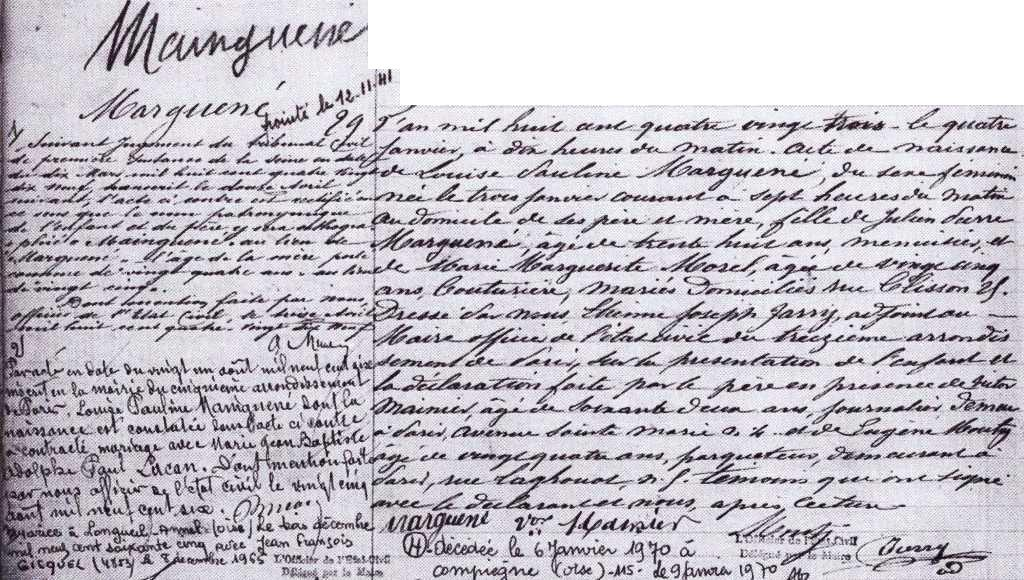 Mainguené
Marguené
Pointé le 12-11-41
29
1/ Suivant Jugement du Tribunal Civil
de première Instance de la Seine en date
du dix Mai, mil huit cent quatre vingt
dix neuf, le douze
suivant, l'acte ci contre est rectifié en
ce sens que le nom patronymique
de l'enfant et du père y sera orthographié
"Mainguené" au lieu de
"Marguené" l'âge de la mère
de vingt quatre ans au lieu
de vingt cinq.
Dont mention faite par nous,
officier de l'Etat Civil le seize
mil huit cent quatre vingt dix neuf
2/
Par acte en date du vingt un août mil neuf cent six
inscrit en la mairie du cinquième arrondissement
de Paris, Louise Pauline Mainguené dont la
naissance est constatée dans l'acte ci contre
a contracté mariage avec Marie Jean Baptiste
Adolphe Paul Lacan. Dont mention faite
par nous officier de l'état civil le vingt cinq
août mil neuf cent six.
Mariée à Longueil-Annel (Oise) Le trois décembre
mil neuf cent soixante cinq avec Jean François
Gicquel le 8 décembre 1965
L'Officier de l'Etat-Civil
Délégué par le Maire
L'an mil huit cent quatre vingt trois le quatre
janvier, à dix heures du matin. Acte de naissance
de Louise Pauline Marguené, du sexe féminin
née le trois janvier courant à sept heures du matin
au domicile de ses père et mère, fille de Julien Pierre
Marguené, âgé de trente huit ans, menuisier, et
de Marie Marguerite Morel, âgée de vingt cinq
ans, Couturière, mariés Domiciliés rue Clisson 25.
Dressé par nous Etienne Joseph Jarry, adjoint au
Maire officier de l'état civil du treizième arrondis
sement de Paris, sur la présentation de l'enfant et
la déclaration faite par le père en présence de Victor
Mainier, âgé de soixante deux ans, journalier, demeur
à Paris, avenue Sainte Marie n. 4 et de Eugène
âgé de vingt quatre ans, parqueteur, demeurant à
Paris, rue Laghouat, n. 5. Témoins qui ont signé
avec le déclarant et nous, après lecture
Marguené Mainier
L'Officier de l'Etat-Civil
Délégué par le Maire
Jarry
(4) Décédée le 6 Janvier 1970 à
Compiègne (Oise) - 115. le 9 Janvier 1970